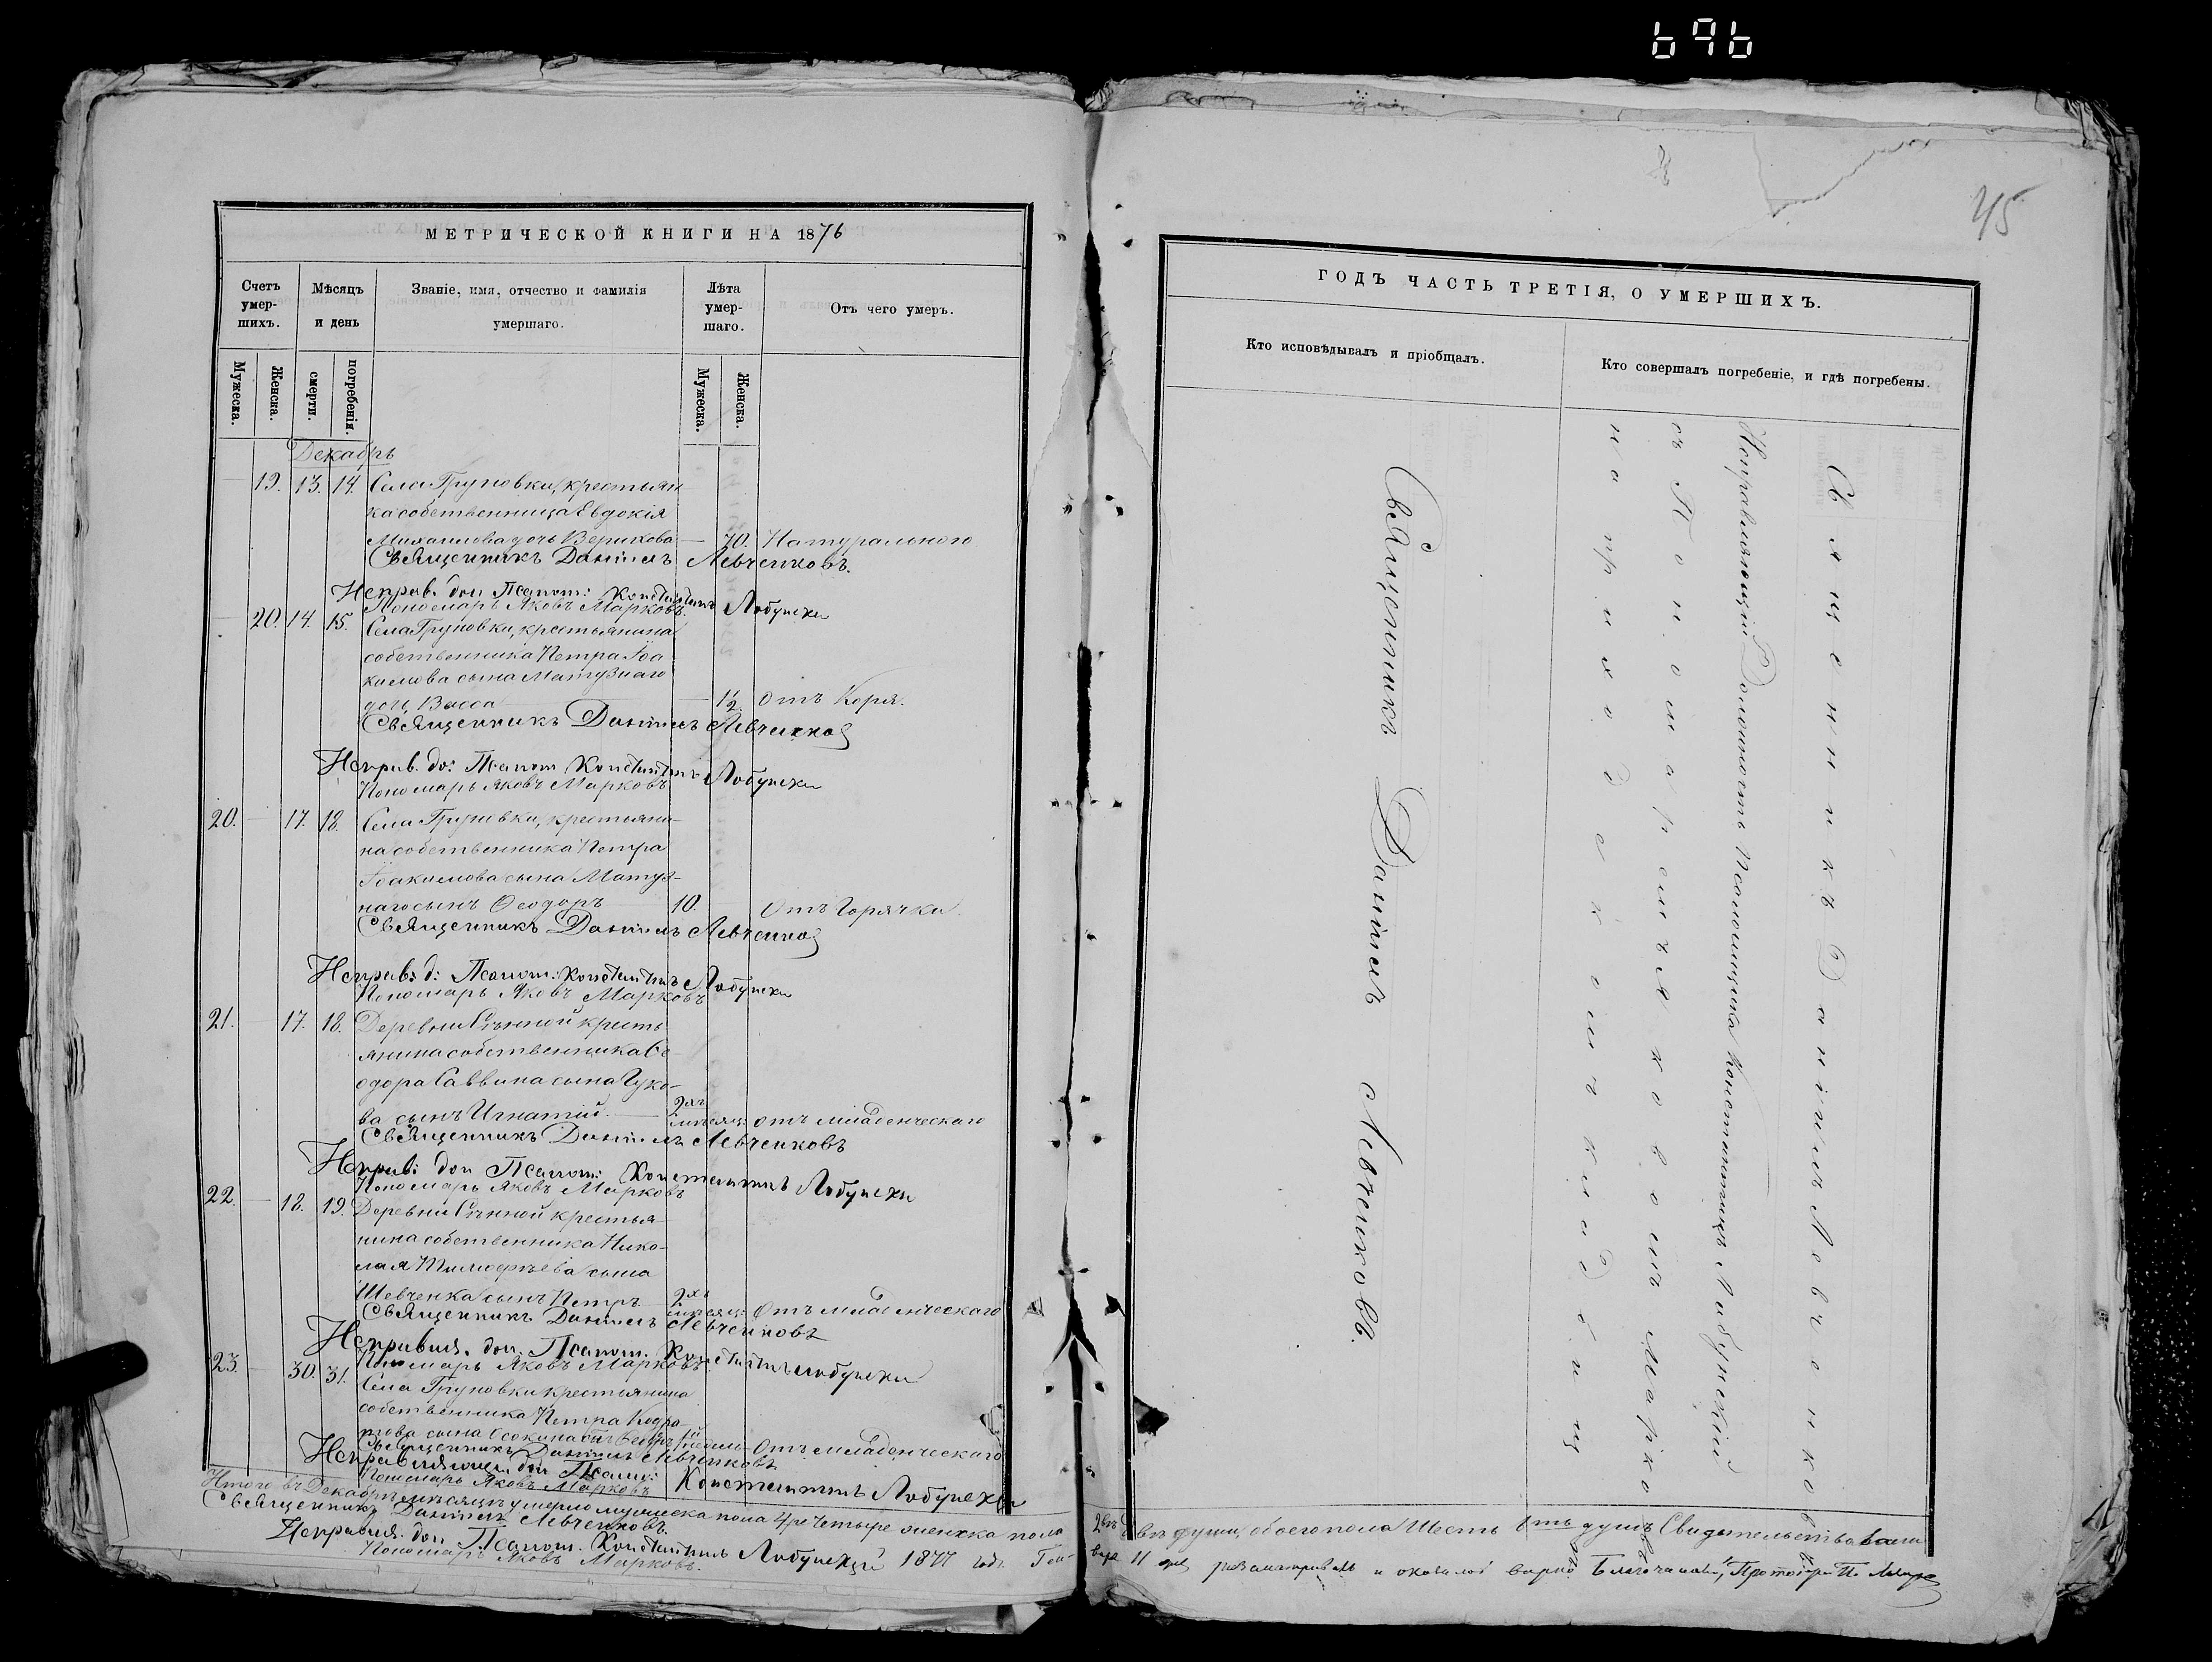 696
45
МЕТРИЧЕСКОЙ КНИГИ НА 1876
Счетъ умер-шихъ.
Мѣсяцъ и день
Званіе, имя, отчество и фамилія умершаго.
Лѣта умер-шаго.
Отъ чего умеръ.
Мужеска.
Женска.
смерти.
погребенія.
Мужеска.
Женска.
Декабрь
19. 13. 14. Села Груновки, крестьян
ка собственница Евдокія
Михаилова дочь Верикова — 70. Натурального
Священникъ Даніилъ Левченковъ.
Исправ. дол Псалом: Константинъ Лобунски
Пономарь Яковъ Марковъ.
20. 14. 15. Села Груновки, крестьянина
собственника Петра Іоа
кимова сына Матузнаго
дочь Васса — 1½ Отъ Коря.
Священникъ Даніилъ Левченко
Исправ. до: Псалом Константинъ Лобунски
Пономарь Яковъ Марковъ
20. — 17. 18. Села Груновки, крестьяни-
на собственника Петра
Іоакимова сына Матуз-
наго сынъ Ѳеодоръ 10. Отъ Горячки.
Священникъ Даніилъ Левченко
Исправ: д: Псалом: Константинъ Лобунски
Пономарь Яковъ Марковъ
21. — 17. 18. Деревни Сѣнной кресть
янина собственника Ѳе-
одора Саввина сына Гуко-
ва сынъ Игнатій — 2хъ мѣсяц: Отъ младенческаго
Священникъ Даніилъ Левченковъ
Исправ: дол Псалом: Константинъ Лобунски
Пономарь Яковъ Марковъ
22. — 18. 19. Деревни Сѣнной крестья-
нина собственника Нико-
лая Тимофѣева сына
Шевченка сынъ Петръ 2хъ мѣсяц: Отъ младенческаго
Священникъ Даніилъ Левченковъ
Исправля. дол. Псалом. Константинъ Лобунски
Пономарь Яковъ Марковъ.
23. — 30. 31. Села Груновки крестьянина
собственника Петра
сына Отъ младенческаго
Священникъ Даніилъ Левченковъ
Исправляющ. дол Псалм: Константинъ Лобунски
Пономарь Яковъ Марковъ
Итого въ Декабрѣ мѣсяцѣ умерло мужеска пола 4ре четыре женска пола
Священникъ Даніилъ Левченковъ.
Исправля. дол Псалом. Константинъ Лобунскій 1877 года Ген-
Пономарь Яковъ Марковъ.
ГОДЪ ЧАСТЬ ТРЕТІЯ, О УМЕРШИХЪ.
Кто исповѣдывалъ и пріобщалъ.
Кто совершалъ погребеніе, и гдѣ погребены.
Священникъ Даніилъ Левченковъ.
Священникъ Даніилъ Левченковъ
Исправляющій Должность Псаломщика Константинъ Лобунскій
съ Пономаремъ Яковомъ Марковымъ
на приходскомъ кладбищѣ
двѣ души, обоего пола Шесть 6ть душъ Свидѣтельствовали
варя 11 дня разсматривалъ и оказалось вѣрно. Благочинный, Протоіерей